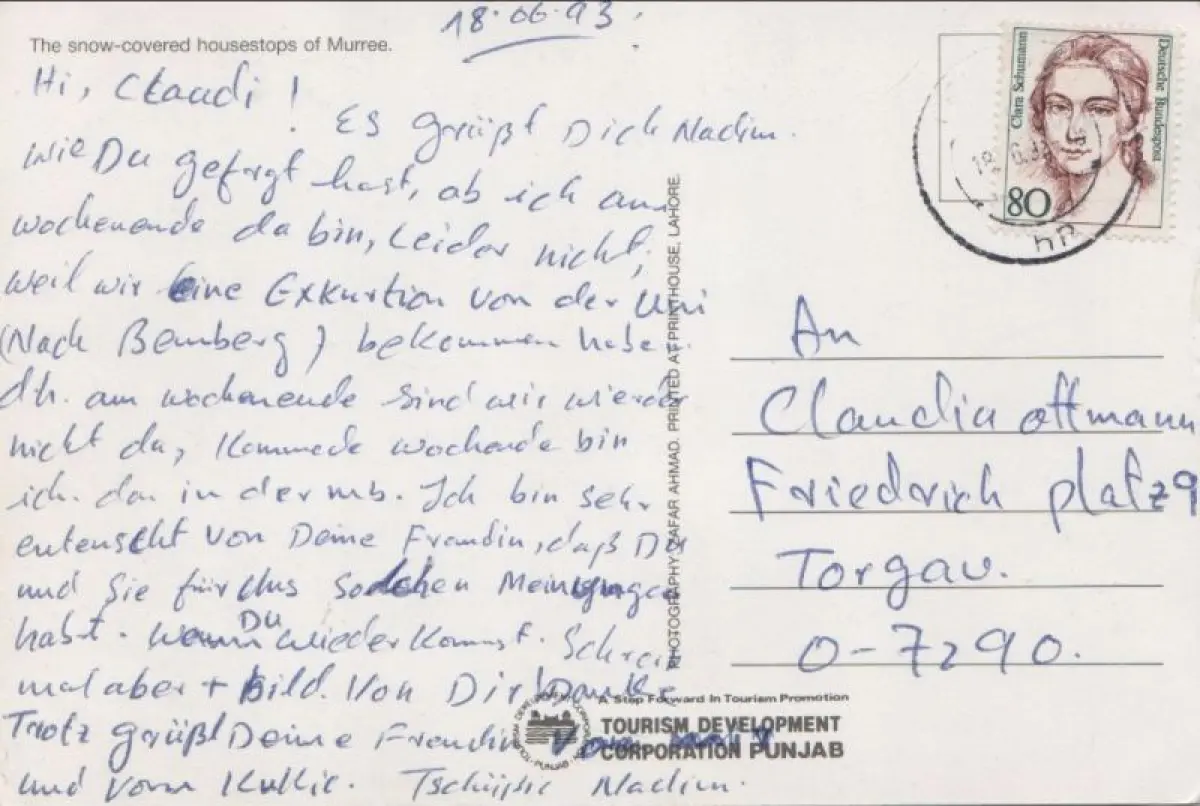 18.06.93.
The snow-covered housestops of Murree.
Hi, Claudi!
Es grüßt Dich Nadim.
Wie Du gefragt hast, ob ich am
wochenende da bin, Leider nicht,
weil wir eine Exkurtion von der Uni
(Nach Bemberg) bekommen habe.
dh. am wochenende sind wir wieder
nicht da, Kommede wochende bin
ich. da in der mb. Ich bin sehr
entenscht von Deine Freundin, daß Du
und Sie für Uns solchen Meinungen
habt. Wenn Du wieder kommst. Schrei
mal aber + Bild. Von Dir! Danke
Trotz grüßt Deine Freundin von
und vom Kullic. Tschüßie Nadim.
PHOTOGRAPHY: ZAFAR AHMAD. PRINTED AT PRINTHOUSE, LAHORE.
Clara Schumann
Deutsche Bundespost
80
An
Claudia Ottmann
Friedrich platz 9
Torgau.
O-7290.
A Step Forward In Tourism Promotion
TOURISM DEVELOPMENT
CORPORATION PUNJAB